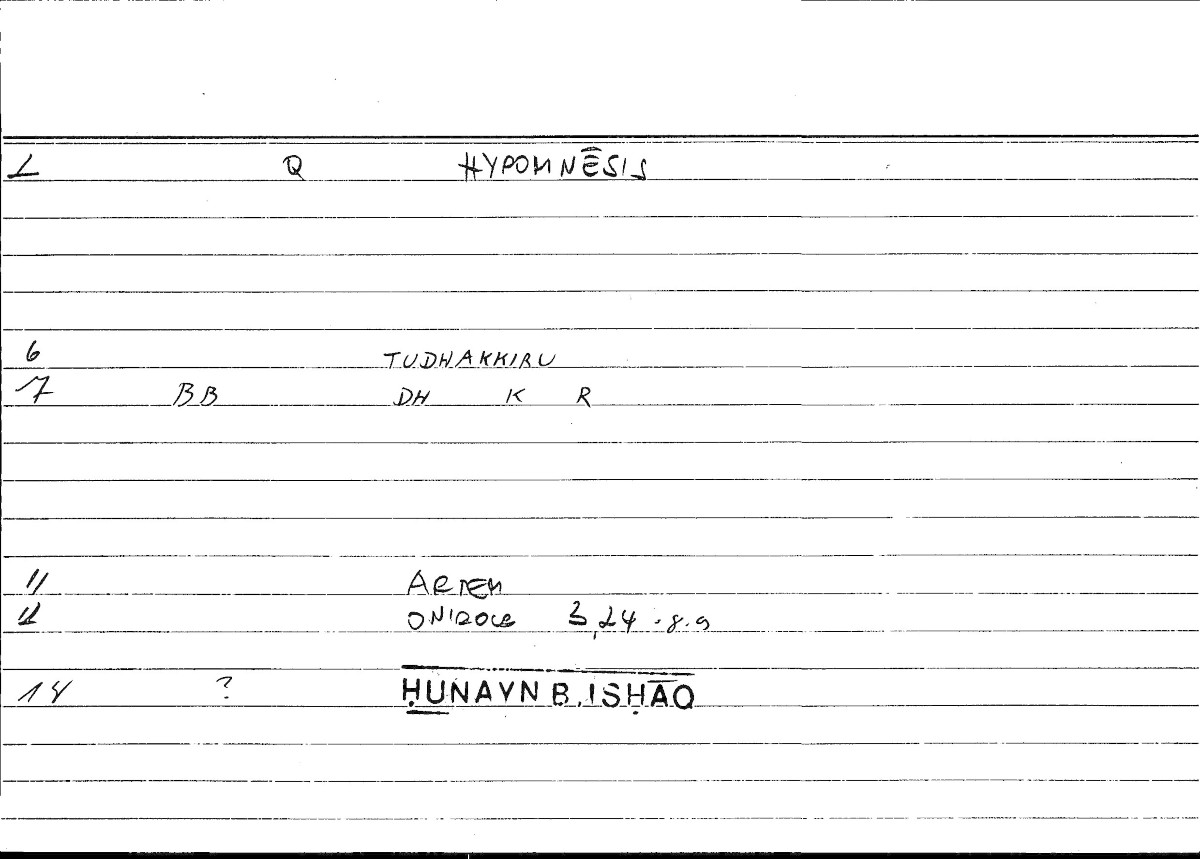 1 Q HYPOMNĒSIS
6 TUDHAKKIRU
7 BB DH K R
11 ARTEM
12 ONIROCR 3,24.8.9
14 ? ḤUNAYN B. ISḤĀQ